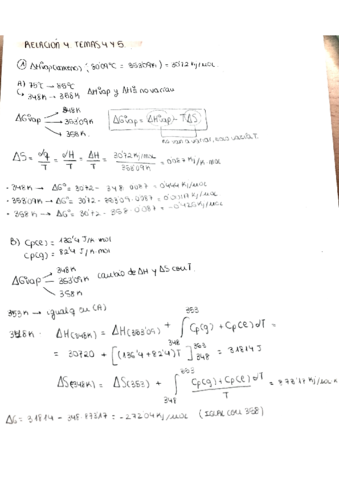 RELACIÓN 4. TEMAS 4 Y 5.
① ΔHºvap(benceno) (80'09ºC = 353'09K) = 30'72 KJ/mol
A) 75ºC → 85ºC
↳ 348K → 358K ΔHº y ΔHº no varían
ΔGºvap → 348K
→ 353'09K
→ 358K
ΔGºvap = ΔHºvap - TΔS
no van a variar, solo varía T.
ΔS = dq/T = dH/T = ΔH/T = 30'72 KJ/mol / 353'09K = 0'087 KJ/K·mol
· 348K → ΔGº = 30'72 - 348·0'087 = 0'444 KJ/mol
· 353'09K → ΔGº = 30'72 - 353'09·0'087 =
· 358K → ΔGº = 30'72 - 358·0'087 = -0'426 KJ/mol
B) Cp(e) = 136'4 J/K·mol
Cp(g) = 82'4 J/K·mol
ΔGºvap → 348K
→ 353'09K
→ 358K
cambio de ΔH y ΔS con T
353K → igual q en (A)
348K · ΔH(348K) = ΔH(353'09) + ∫ 353 348 Cp(g) + Cp(e) dT =
= 30720 + [(136'4 + 82'4)T] 353 348 = 31814 J
ΔS(348K) = ΔS(353) + ∫ 353 348 Cp(g) + Cp(e) dT / T =
ΔG = 31814 - 348· = -27204 KJ/mol (IGUAL CON 358)